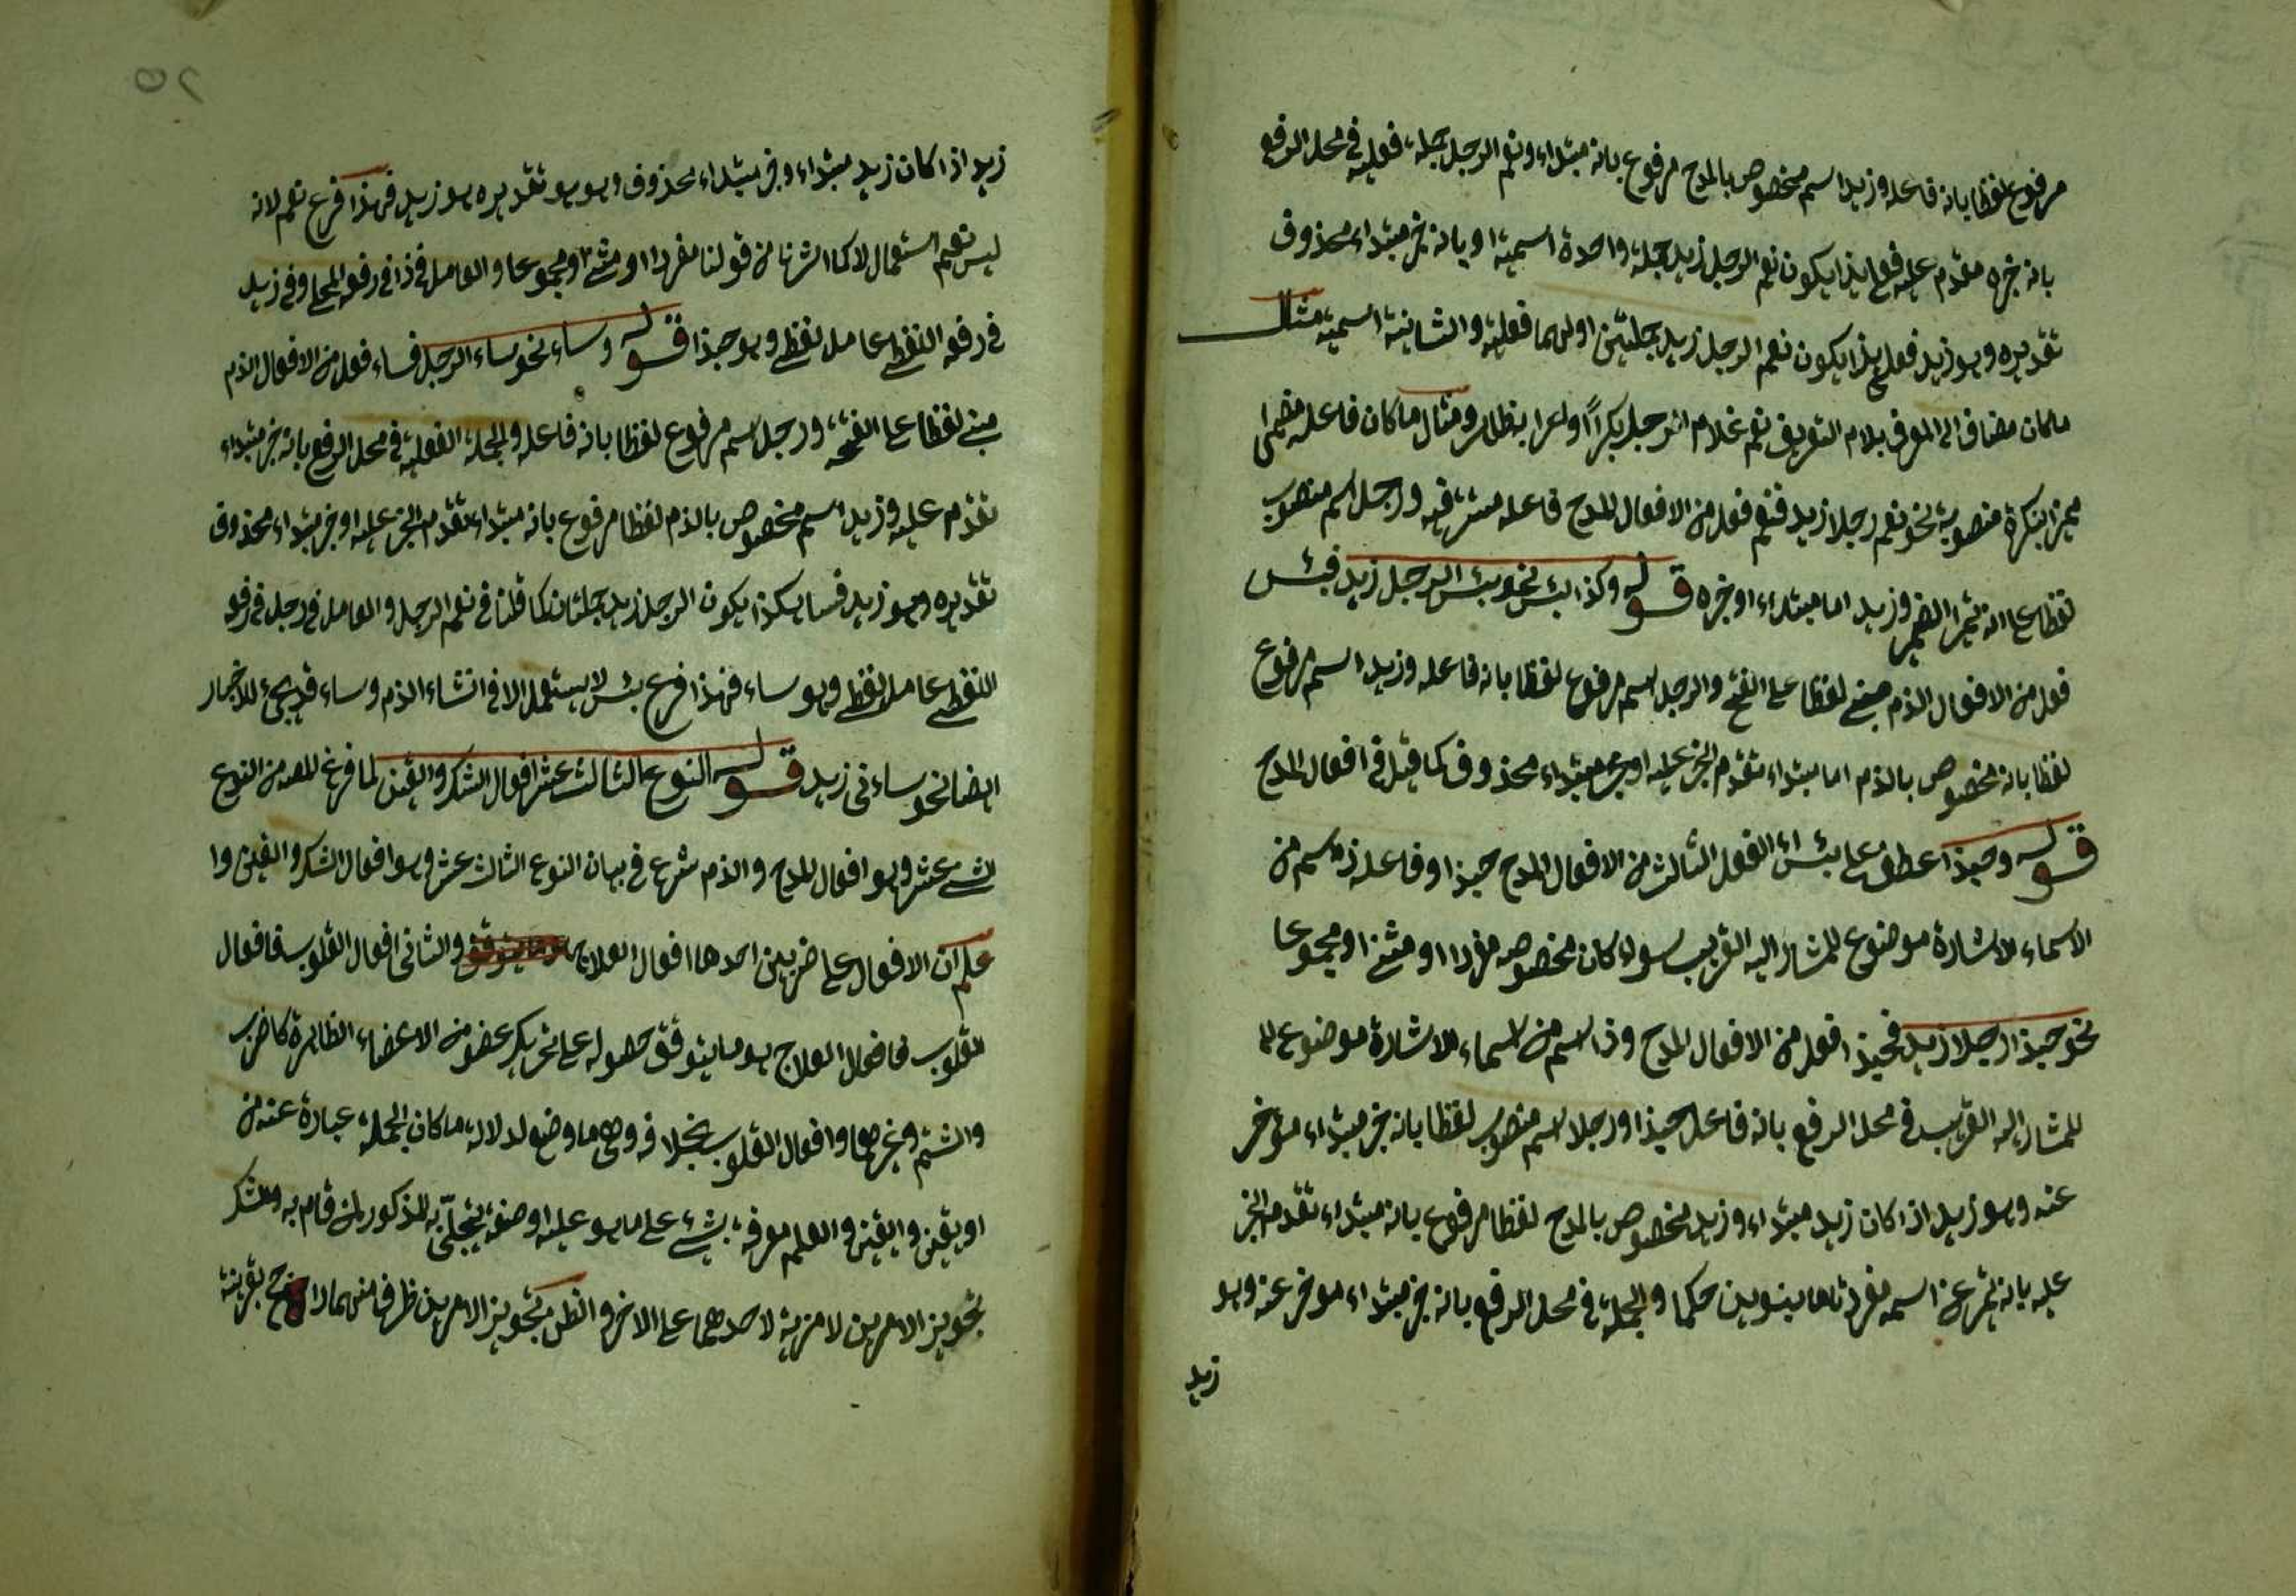 مرفوع لفظا بانه فاعله وزيد اسم مخصوص بالمدح مرفوع بانه مبتداء ونعم الرجل جملة فعلية في محل الرفع
بانه خبره مقدم عليه فعلى هذا يكون نعم الرجل زيد جملة واحدة اسمية او بانه خبر مبتداء محذوف
تقديره وهو زيد فعلى هذا يكون نعم الرجل زيد جملتين اولهما فعلية والثانية اسمية مثال
ماكان مضاف الى المعرف بلام التعريف نعم غلام الرجل بكرا ومثال ما كان فاعله مضمرا
مميزا بنكرة منصوبة نحو نعم رجلا زيد فنعم فعل من الافعال المدح فاعله مستتر فيه ورجل اسم منصوب
لفظا على انه تميز المضمر وزيد اما مبتداء او خبره قوله وكذا بئس نحو بئس الرجل زيد فبئس
فعل من الافعال الذم مبني لفظا على الفتح والرجل اسم مرفوع لفظا بانه فاعله وزيد اسم مرفوع
لفظا بانه مخصوص بالذم اما مبتداء تقدم الخبر عليه او خبر مبتداء محذوف كما قيل في افعال المدح
قوله وحبذا عطف على بئس اي الفعل الثالث من الافعال المدح حبذا وفاعله ذا اسم من
الاسماء الاشارة موضوع للمشار اليه القريب سواء كان مخصوصه مفردا او مثنى او مجموعا
نحو حبذا رجلا زيد فحبذا فعل من الافعال المدح وذا اسم من اسماء الاشارة موضوع لـ
للمشار اليه القريب في محل الرفع بانه فاعل حبذا ورجلا اسم منصوب لفظا بانه خبر مبتداء مؤخر
عنه وهو زيد اذا كان زيد مبتداء وزيد مخصوص بالمدح لفظا مرفوع بانه مبتداء تقدم الخبر
عليه بانه تميز عن اسم مفرد تاما بتنوين حكما والجملة في محل الرفع بانه خبر مبتداء موخر عنه وهو
زيد
زيد اذا كان زيد مبتداء وخبر مبتداء محذوف وهو هو تقديره هو زيد فهذا فرع نعم لانه
ليس نعم استعمال لا كما اشرنا من قولنا مفردا او مثنى ومجموعا والعامل في ذا في رفع المحل وفي زيد
في رفع اللفظي عامل لفظي وهو حبذا قوله وساء نحو ساء الرجل فساء فعل من الافعال الذم
مبني لفظا على الفتحة ورجل اسم مرفوع لفظا بانه فاعله والجملة الفعلية في محل الرفع بانه خبر مبتداء
تقدم عليه وزيد اسم مخصوص بالذم لفظا مرفوع بانه مبتداء تقدم الخبر عليه او خبر مبتداء محذوف
تقديره وهو زيد فساء هكذا يكون الرجل زيد جملتان كما قلنا في نعم الرجل والعامل في رجل في رفع
اللفظي عامل لفظي وهو ساء فهذا فرع بئس لا يستعمل الا في انشاء الذم وساء قد يجيء للاخبار
ايضا نحو ساءني زيد قوله النوع الثالث عشر افعال الشك واليقين لما فرغ المص من النوع
الثاني عشر وهو افعال المدح والذم شرع في بيان النوع الثالث عشر وهو افعال الشك واليقين وا
علم ان الافعال على ضربين احدها افعال العلاج والثاني افعال القلوب فافعال
القلوب فافعال العلاج هو ما يتوقف حصوله على تحريك عضو من الاعضاء الظاهرة كاضرب
والشتم وغيرهما وافعال القلوب بخلافه وهي ما وضع لدلالة ما كان الجملة عبارة عنه من
او يقين واليقين والعلم معرفة بشيء على ما هو عليه او صفة يتجلى به المذكور لمن قام به والشك
تجويز الامرين لا مزية لاحدهما على الاخر والظن تجويز الامرين ظرف منهما راجح بقرينة